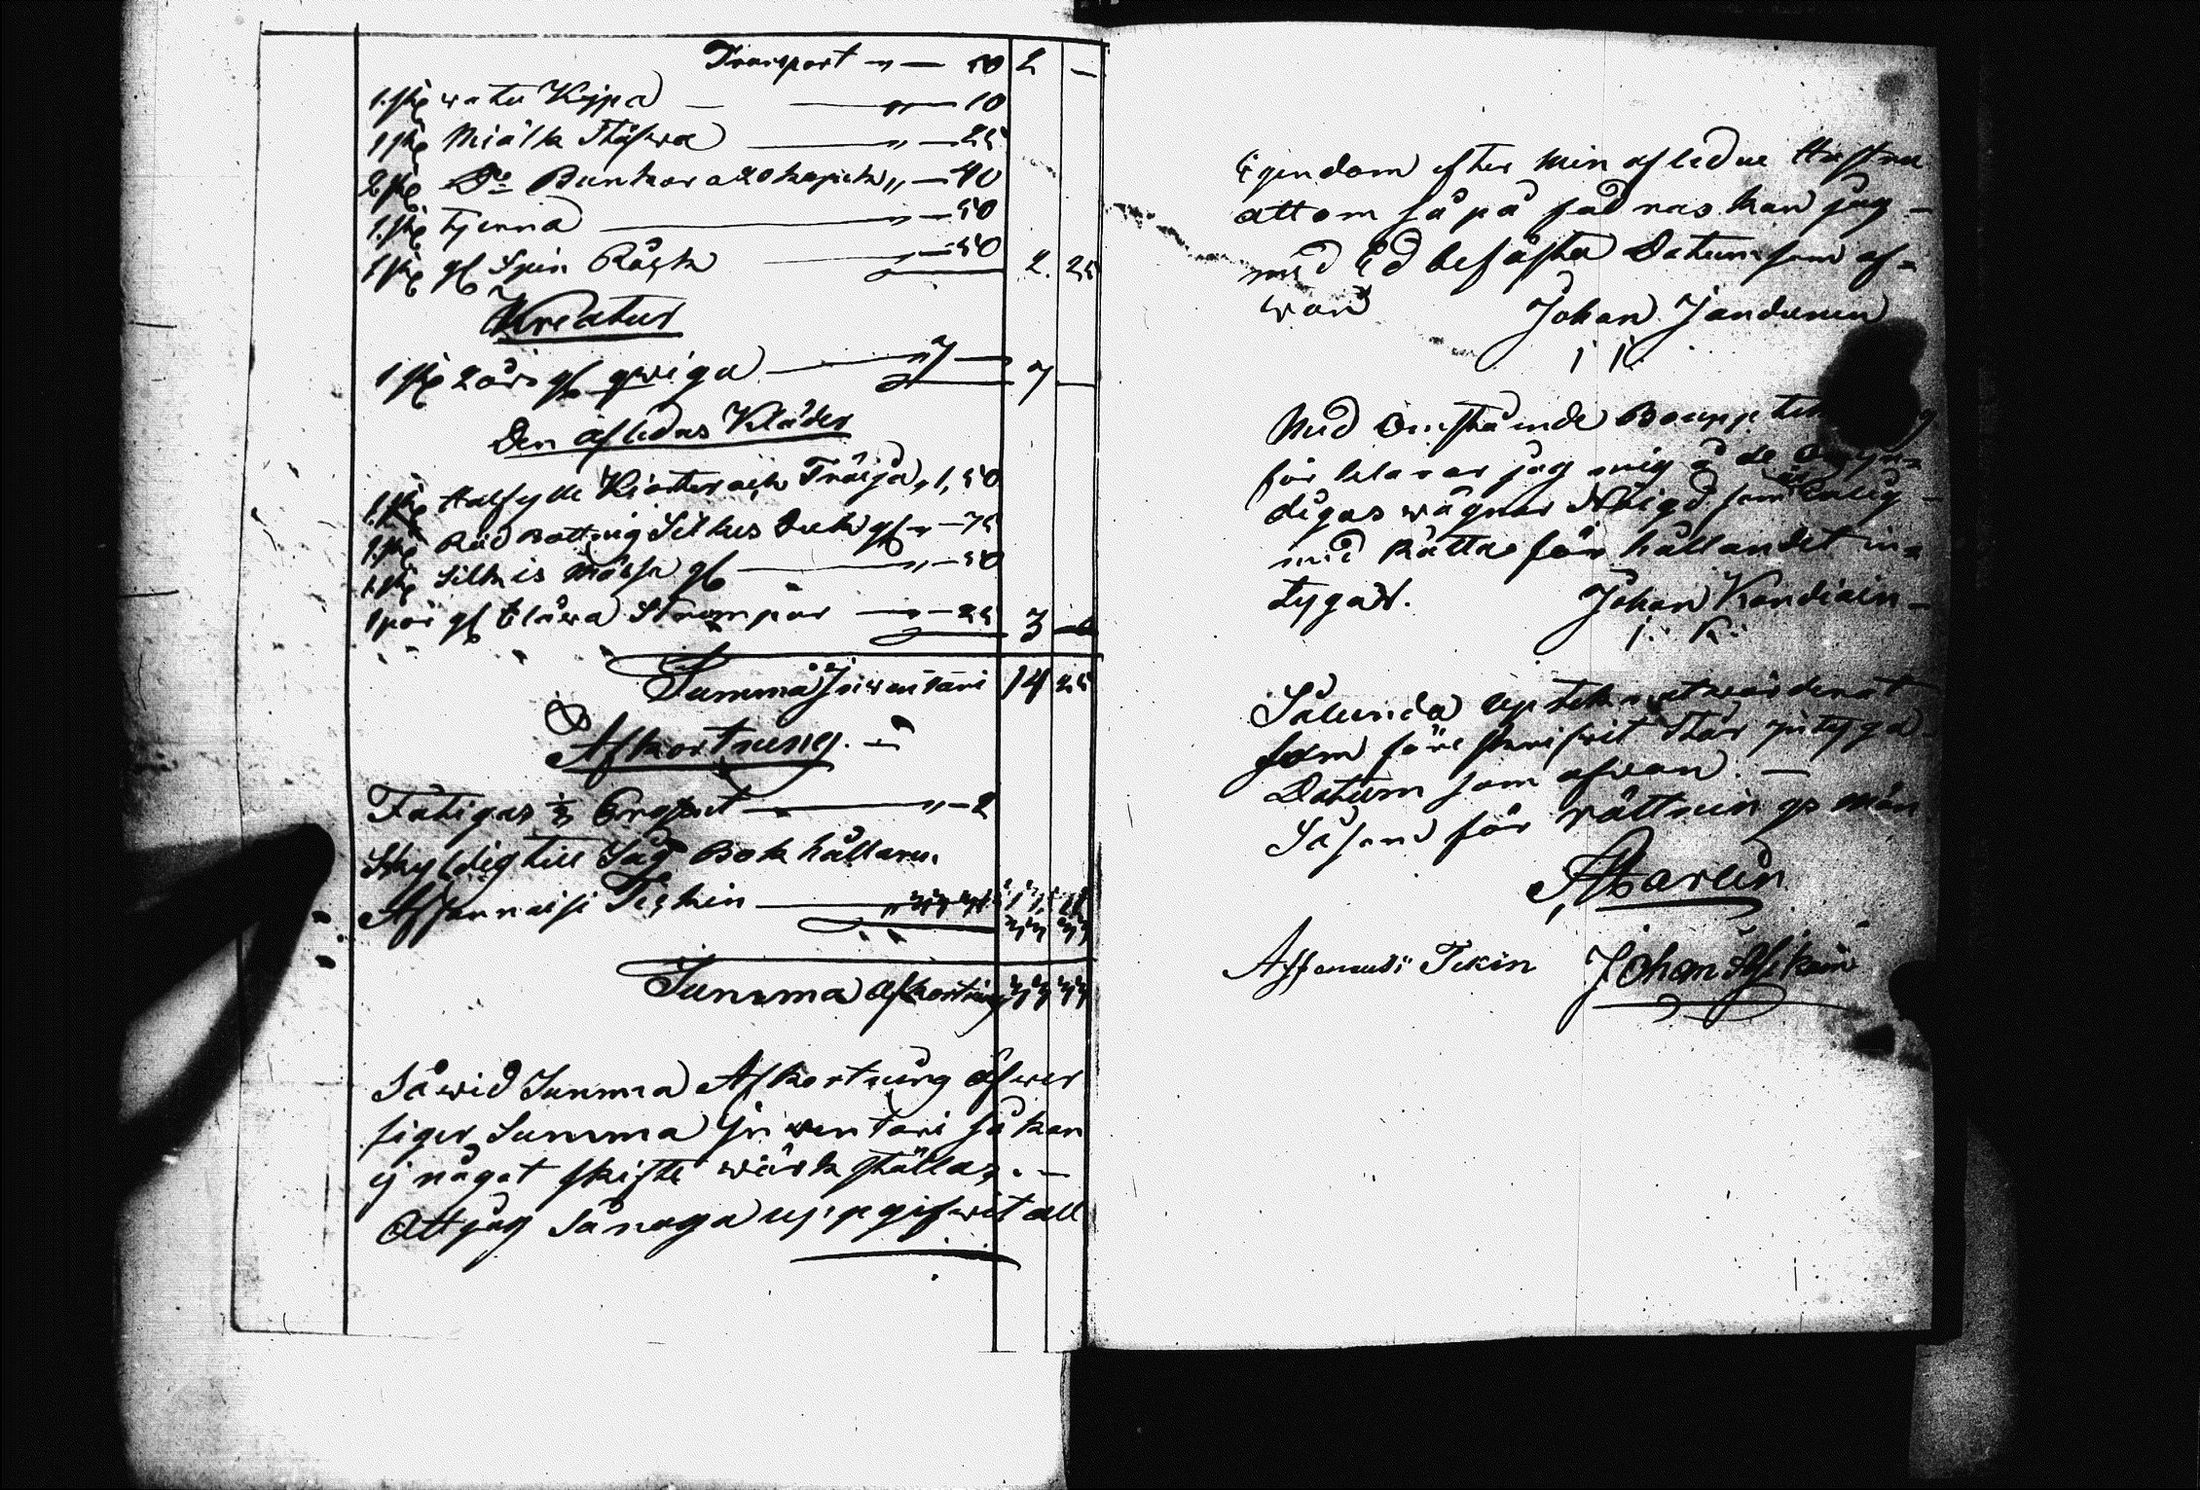 Transport " — 50 2 —
1. st. watu Kypa — " — 10
1 st. Miälk Stäfwa — " — 25
2 st. Do Bunkar a 20 kopek " — 40
1. st. Tjenna — " — 50
1 st. gl Spin Råck — " — 50 2. 25
Kreatur
1 st. 2 års gl qwiga — " 7 — 7 —
Den afledas Kläder
1. st. Halfylle Kiortel ach Tröija " 1, 50
1. st. Röd Bottnig Silkes Duk gl " — 75
1. st. Silkis Mössa gl — " — 50
1 par gl blåwa Strumpor — " — 25 3 —
Summa Inwentari 14 25
Afkortning. —
Fatigas ½ Procent — " — 2
Skyldig till Såg Bokhållaren
Affannaisi Teskin —
Summa afkortning
Så wid Summa Afkortning öfwer
stiger Summa Inwentari så kan
ej något skifte wärkställas. —
Att jag så noga uppgifwit all
Egendom efter min afledne Hustru
att om så på fodras kan jag —
med Ed befästa Datum som of-
wan Johan Jandunen
Med Omstående Boupptekning
förklarar jag mig å de Omyn-
digas wägnar Nöigd som är Laglig —
med Rätta för hållandet in-
tygas. Johan Kondiain —
I. K.
Sålunda uptecknat wärderat
som före skrifwit står intyga
Datum som ofwan. —
Såsom för rättnings Män
Affanasi Tekin Johan